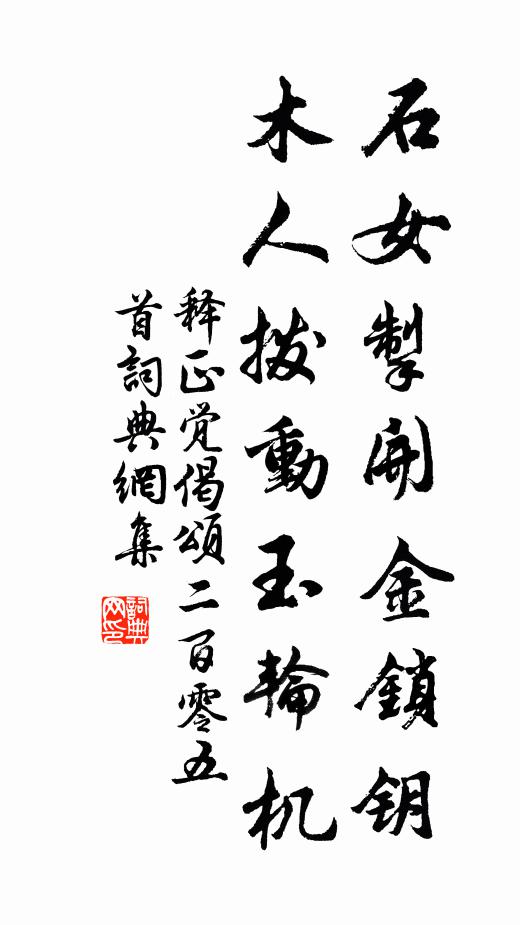 石女掣開金鎖钥
木人拨動玉輪机
释正觉偈頌二百零五
首詞典網集
詞典
网印